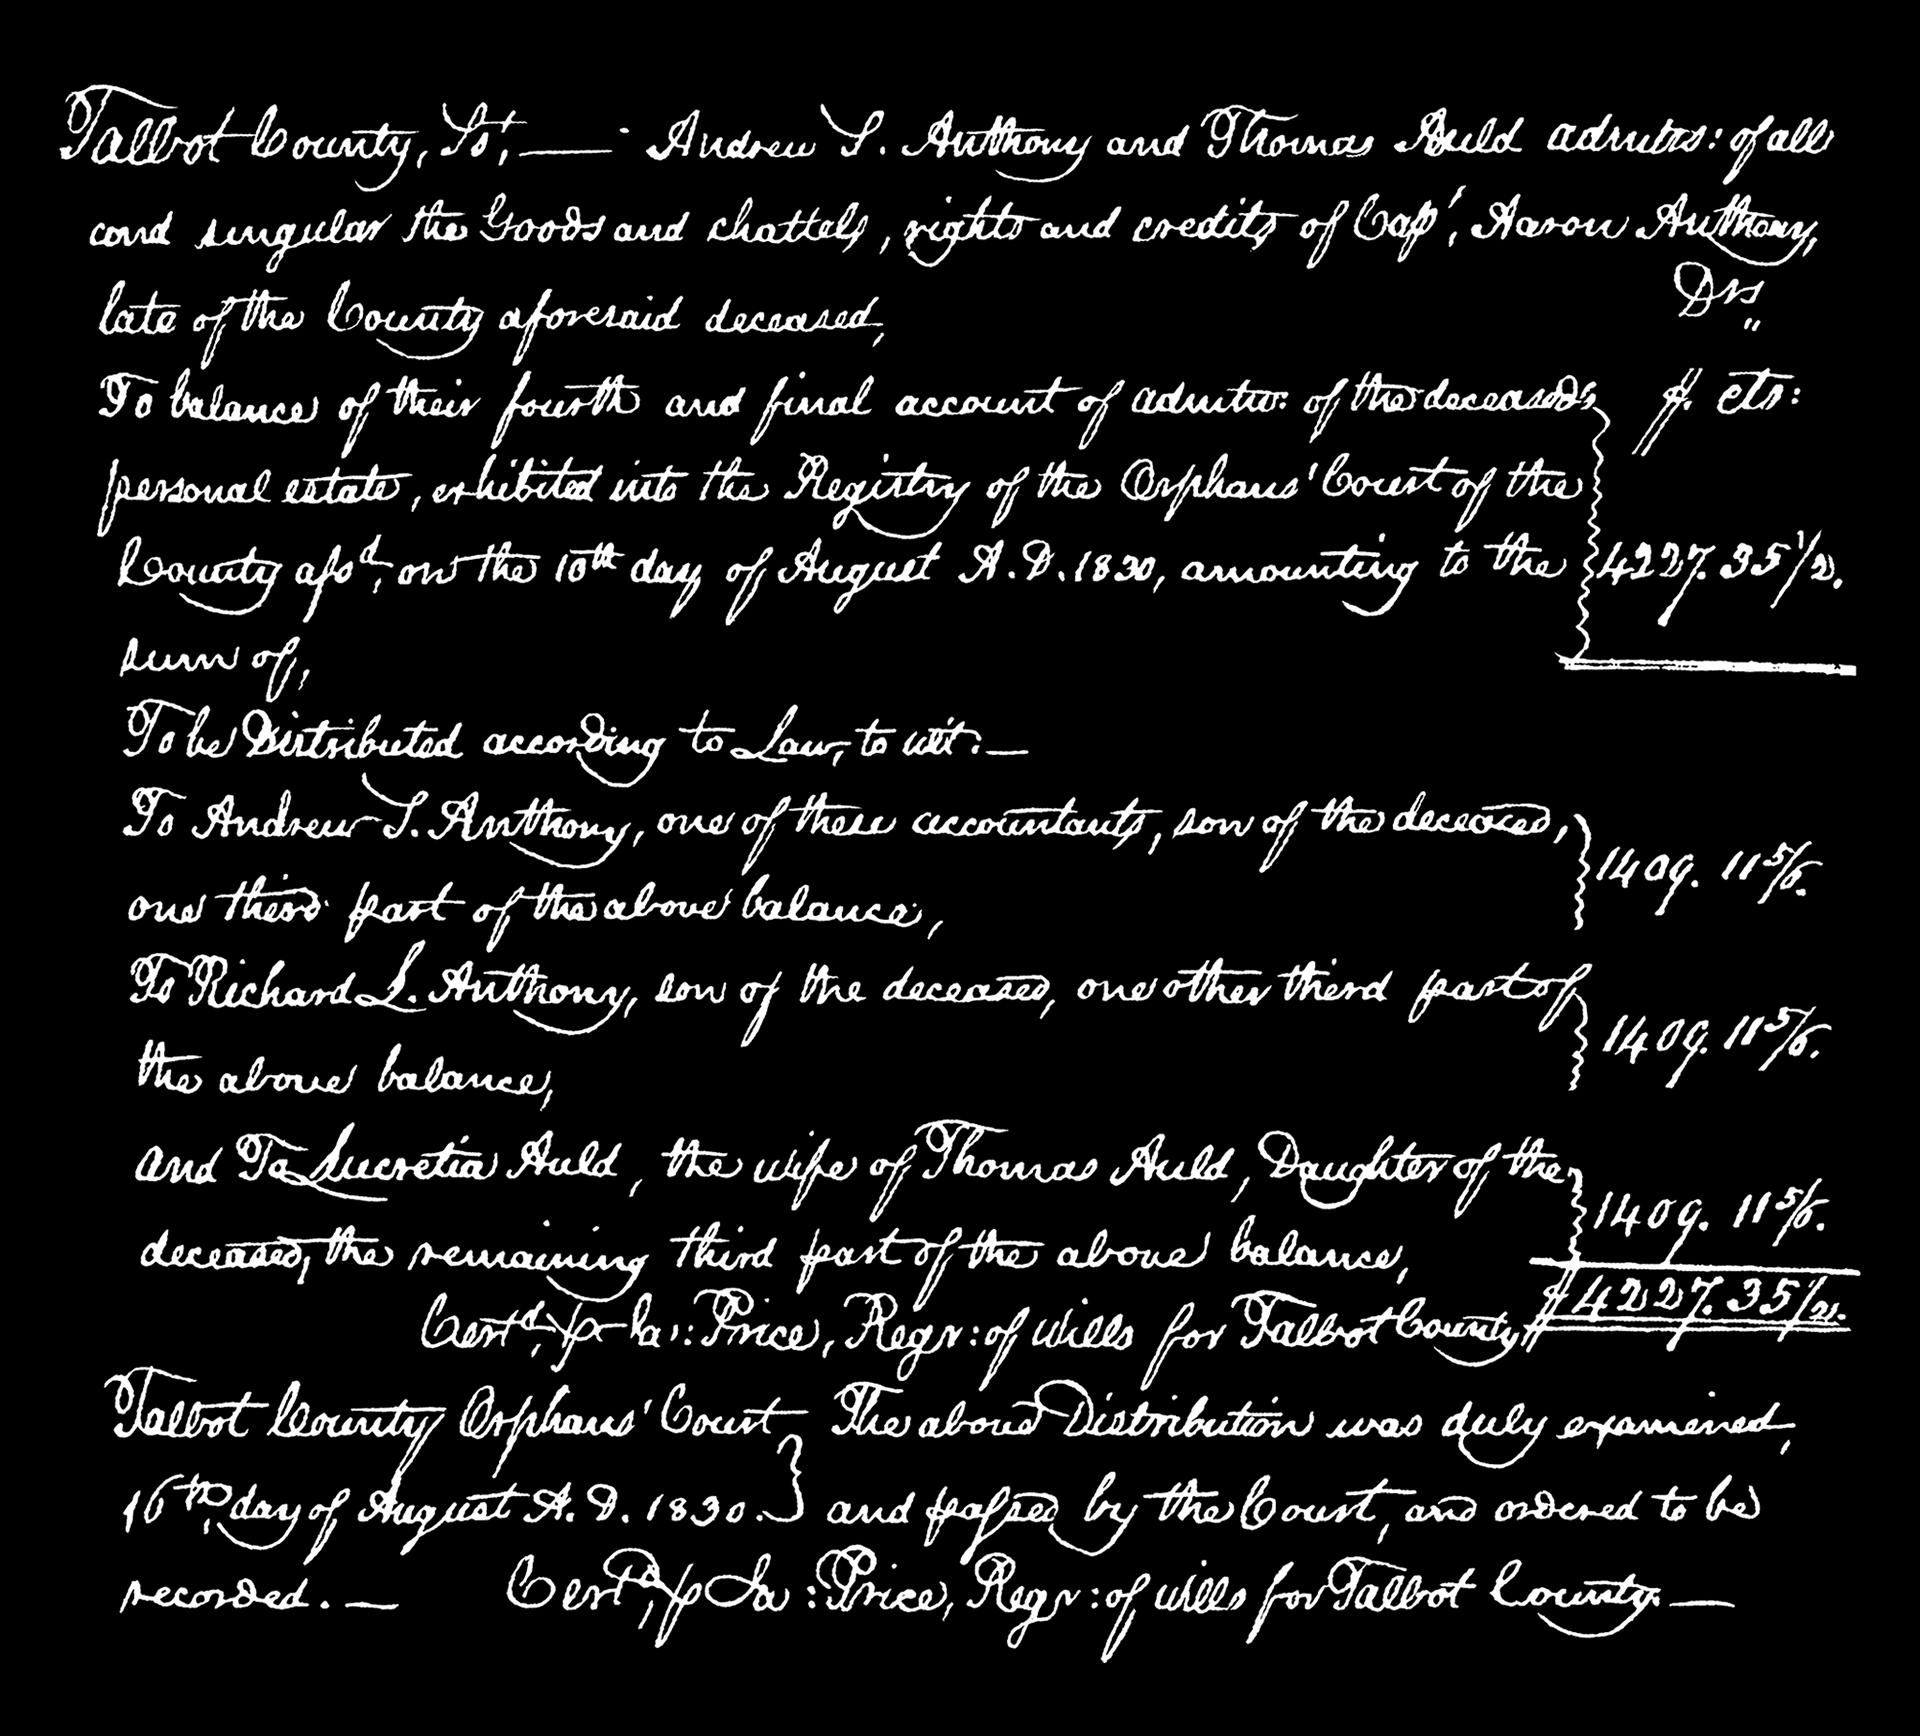 Talbot County, Sst, — Andrew S. Anthony and Thomas Auld admrs: of all
and singular the Goods and chattels, rights and credits of Capt, Aaron Anthony,
late of the County aforesaid deceased, Drs,,
To balance of their fourth and final account of admtn: of the deceased's $. cts:
personal estate, exhibited into the Registry of the Orphans' Court of the
County afsd, on the 10th day of August A.D. 1830, amounting to the 4227. 35 1/2.
sum of,
To be Distributed according to Law, to wit: —
To Andrew S. Anthony, one of these accountants, son of the deceased,
one third part of the above balance, 1409. 11 5/6.
To Richard L. Anthony, son of the deceased, one other third part of
the above balance, 1409. 11 5/6.
and To Lucretia Auld, the wife of Thomas Auld, Daughter of the
deceased, the remaining third part of the above balance, 1409. 11 5/6.
$4227. 35 1/2.
Certd, p Ja: Price, Regr: of wills for Talbot County
Talbot County Orphans' Court } The above Distribution was duly examined,
16th, day of August A.D. 1830. } and passed by the Court, and ordered to be
recorded. — Certd, p Ja: Price, Regr: of wills for Talbot County. —